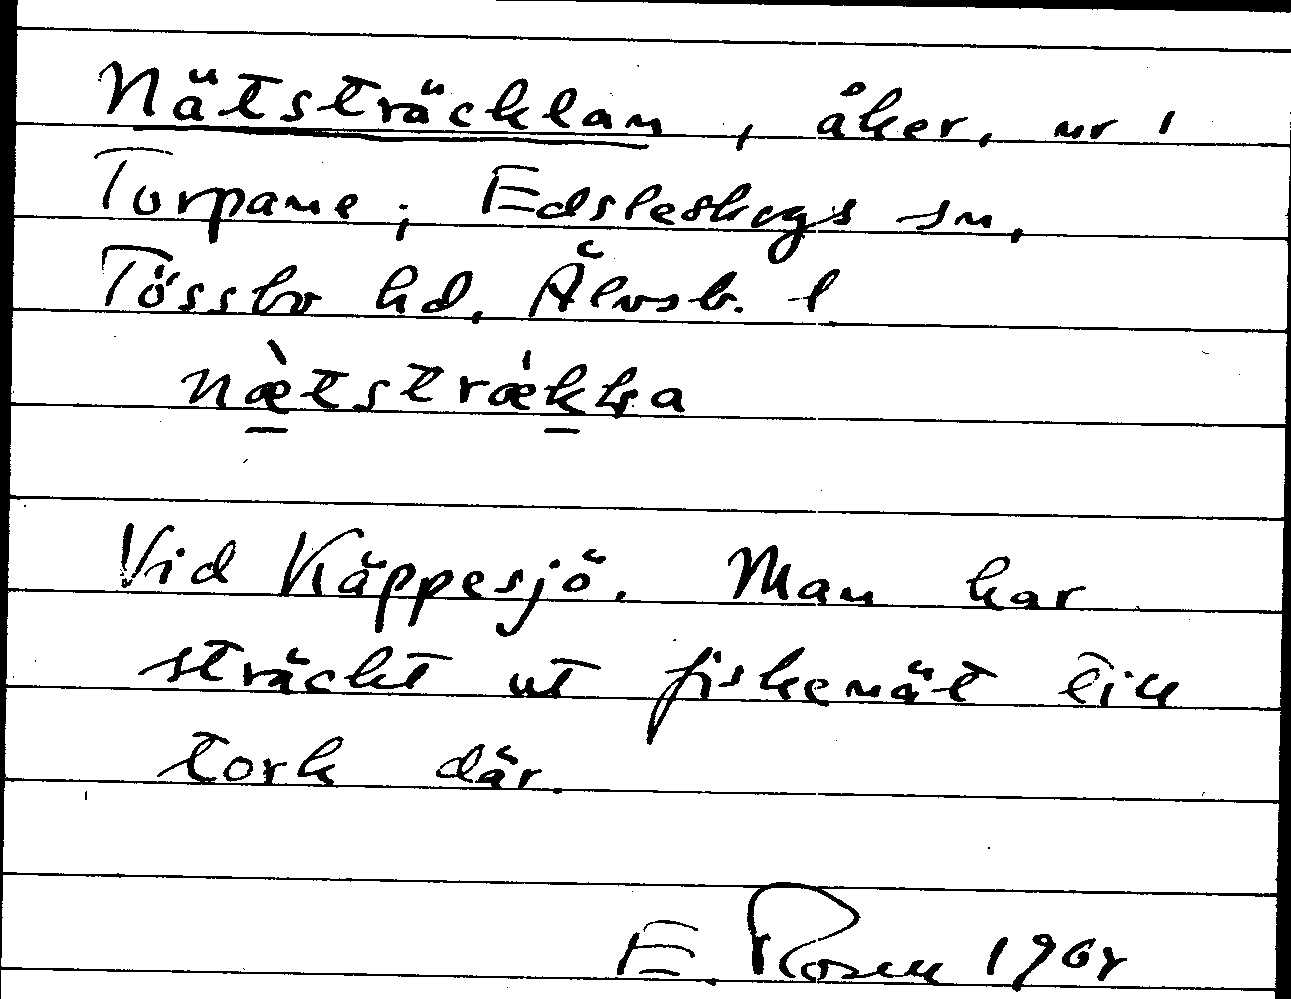 Nätsträcklan, åker, nr 1
Torpane; Edsleskogs sn,
Tössbo hd. Älvsb. l
næ̀tstrǽkka
Vid Käppesjö. Man har
sträckt ut fiskenät till
tork där.
E. Rosén 1967